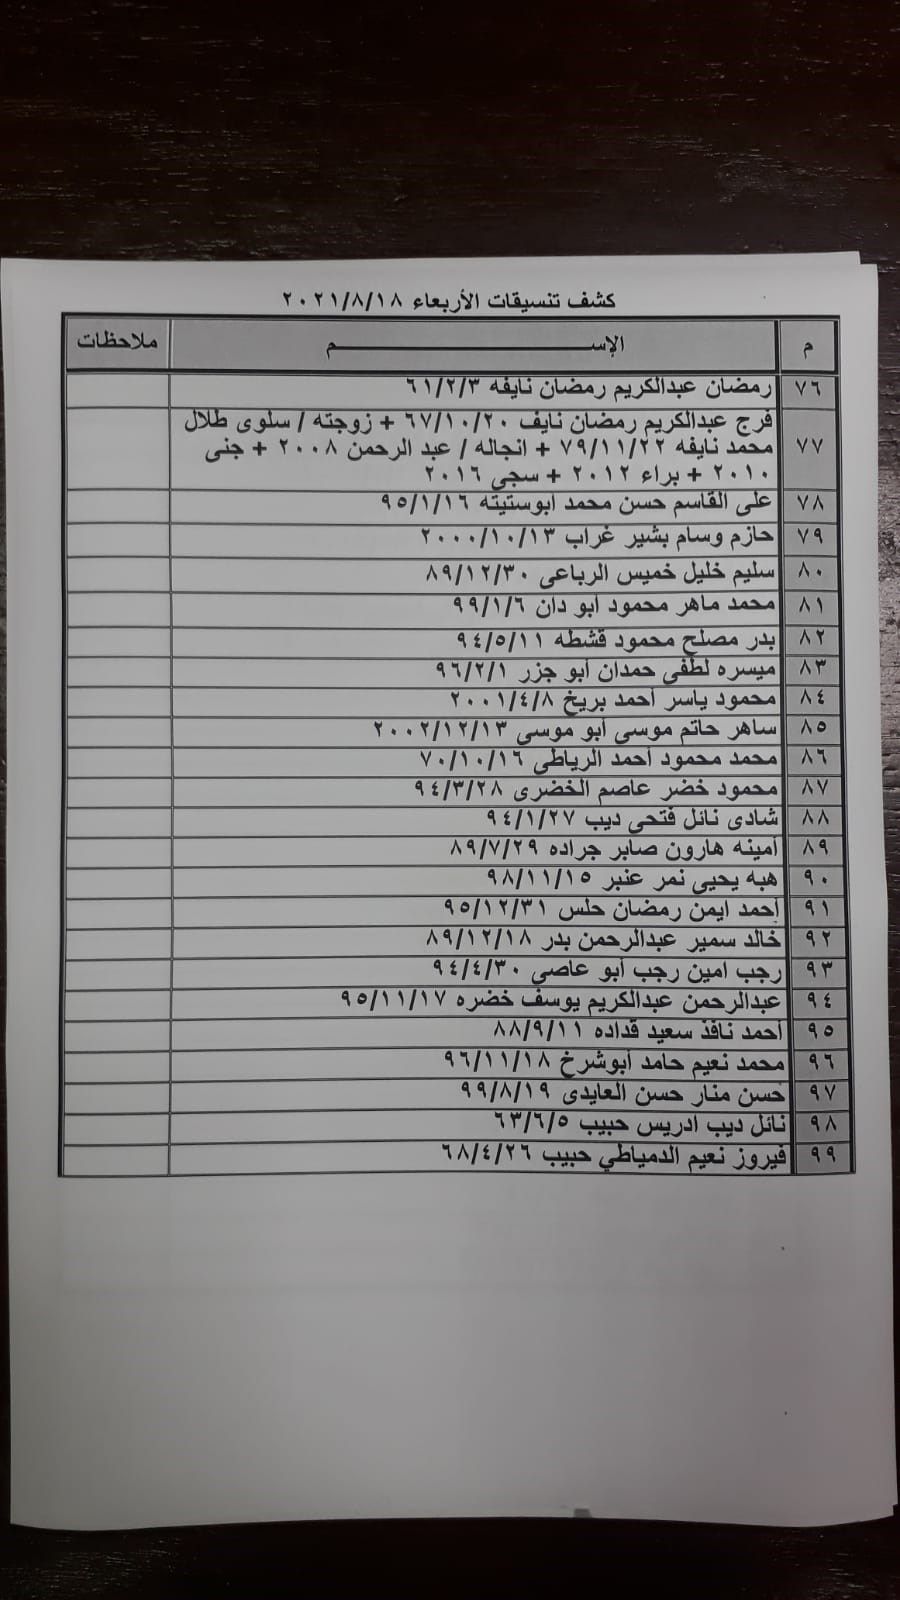 كشف تنسيقات الأربعاء ٢٠٢١/٨/١٨
م الإســـــــــــــــم ملاحظات
٧٦ رمضان عبدالكريم رمضان نايفه ٦١/٢/٣
٧٧ فرج عبدالكريم رمضان نايف ٦٧/١٠/٢٠ + زوجته / سلوى طلال
محمد نايفه ٧٩/١١/٢٢ + انجاله / عبد الرحمن ٢٠٠٨ + جنى
٢٠١٠ + براء ٢٠١٢ + سجي ٢٠١٦
٧٨ على القاسم حسن محمد ابوستيته ٩٥/١/١٦
٧٩ حازم وسام بشير غراب ٢٠٠٠/١٠/١٣
٨٠ سليم خليل خميس الرباعى ٨٩/١٢/٣٠
٨١ محمد ماهر محمود ابو دان ٩٩/١/٦
٨٢ بدر مصلح محمود قشطه ٩٤/٥/١١
٨٣ ميسره لطفي حمدان ابو جزر ٩٦/٢/١
٨٤ محمود ياسر أحمد بريخ ٢٠٠١/٤/٨
٨٥ ساهر حاتم موسي أبو موسي ٢٠٠٢/١٢/١٣
٨٦ محمد محمود أحمد الرياطى ٧٠/١٠/١٦
٨٧ محمود خضر عاصم الخضرى ٩٤/٣/٢٨
٨٨ شادى نائل فتحى ديب ٩٤/١/٢٧
٨٩ أمينه هارون صابر جراده ٨٩/٧/٢٩
٩٠ هبه يحيي نمر عنبر ٩٨/١١/١٥
٩١ أحمد ايمن رمضان حلس ٩٥/١٢/٣١
٩٢ خالد سمير عبدالرحمن بدر ٨٩/١٢/١٨
٩٣ رجب امين رجب أبو عاصى ٩٤/٤/٣٠
٩٤ عبدالرحمن عبدالكريم يوسف خضره ٩٥/١١/١٧
٩٥ أحمد نافذ سعيد قداده ٨٨/٩/١١
٩٦ محمد نعيم حامد ابوشرخ ٩٦/١١/١٨
٩٧ حسن منار حسن العايدى ٩٩/٨/١٩
٩٨ نائل ديب ادريس حبيب ٦٣/٦/٥
٩٩ فيروز نعيم الدمياطي حبيب ٦٨/٤/٢٦